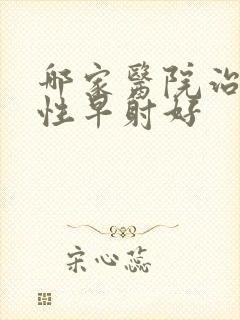 哪家醫院治
性早射好
宋心蕊